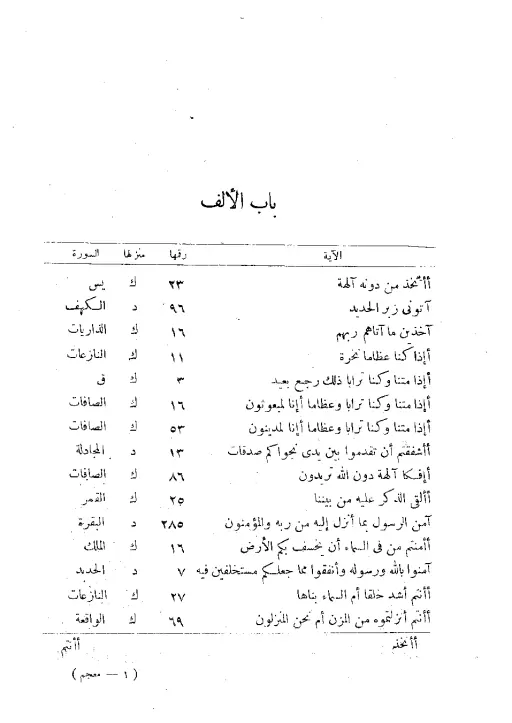 باب الألف
الآية رقمها منزلها السورة
أأتخذ من دونه آلهة ٢٣ ك يس
آتونى زبر الحديد ٩٦ د الكهف
آخذين ما آتاهم ربهم ١٦ ك الذاريات
أإذا كنا عظاما نخرة ١١ ك النازعات
أإذا متنا وكنا ترابا ذلك رجع بعيد ٣ ك ق
أإذا متنا وكنا ترابا وعظاما أإنا لمبعوثون ١٦ ك الصافات
أإذا متنا وكنا ترابا وعظاما أإنا لمدينون ٥٣ ك الصافات
أأشفقتم أن تقدموا بين يدى نجواكم صدقات ١٣ د المجادلة
أإفكا آلهة دون الله تريدون ٨٦ ك الصافات
أألقى الذكر عليه من بيننا ٢٥ ك القمر
آمن الرسول بما أنزل إليه من ربه والمؤمنون ٢٨٥ د البقرة
أأمنتم من فى السماء أن يخسف بكم الأرض ١٦ ك الملك
آمنوا بالله ورسوله وأنفقوا مما جعلكم مستخلفين فيه ٧ د الحديد
أأنتم أشد خلقا أم السماء بناها ٢٧ ك النازعات
أأنتم أنزلتموه من المزن أم نحن المنزلون ٦٩ ك الواقعة
أأتخذ أأنتم
(١ — معجم)